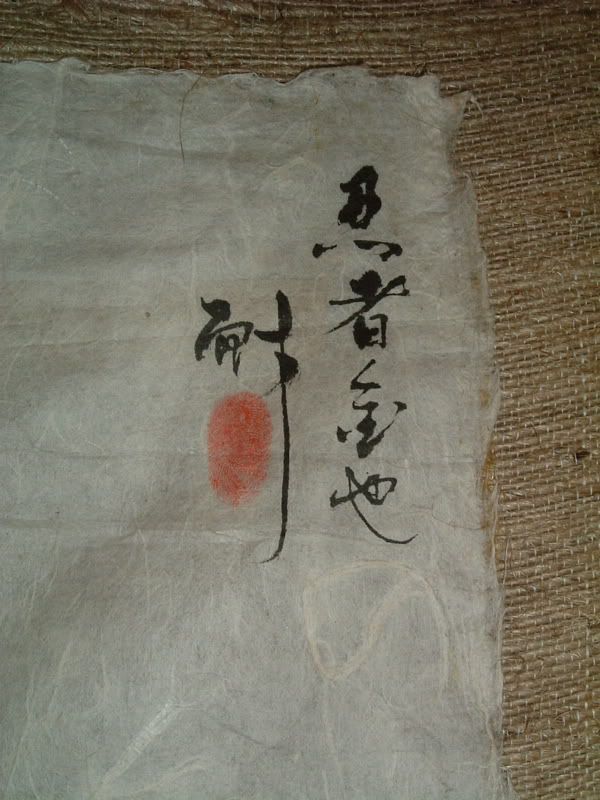 忍者金也
耐